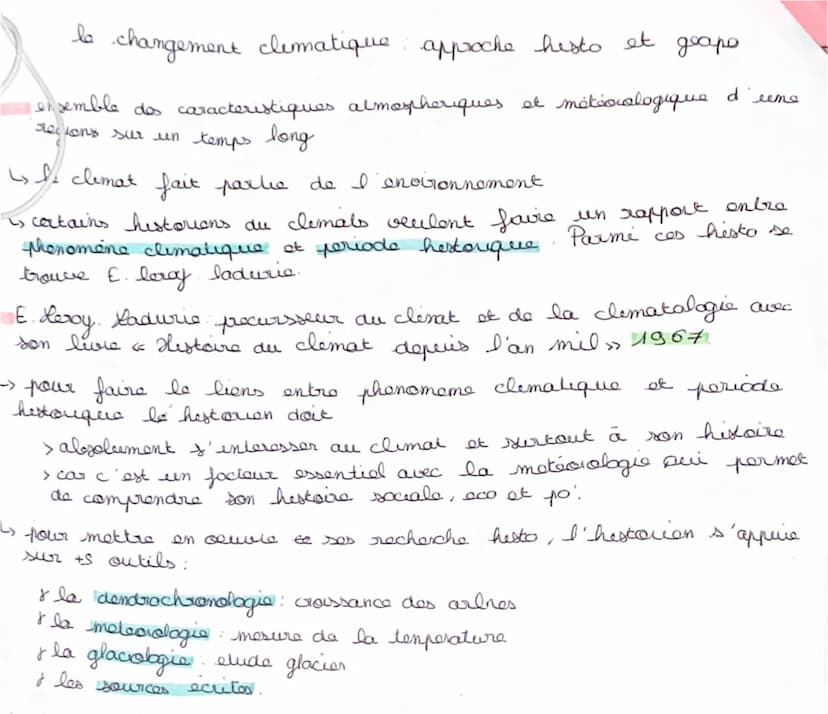 le changement climatique : approche histo et géopo
ensemble des caracteristiques atmospheriques et météorologique d'une
regions sur un temps long
↳ le climat fait partie de l'environnement
↳ certains historiens du climats veulent faire un rapport entre
phénomène climatique et periode historique. Parmi ces histo se
trouve E. leroy ladurie.
E. Leroy. Ladurie : precursseur du climat et de la climatologie avec
son livre « Histoire du climat depuis l'an mil » 1967
→ pour faire le liens entre phenomeme climatique et periode
historique le historien doit
> absolument s'interesser au climat et surtout à son histoire
> car c'est un facteur essentiel avec la météorologie qui permet
de comprendre son histoire sociale, eco et po'.
↳ pour mettre en oeuvre ses recherche histo, l'historien s'appuie
sur +s outils :
* la dendrochronologie : croissance des arbres
* la meteorologie : mesure de la temperature
* la glaciologie : etude glacier
* les sources écrites.